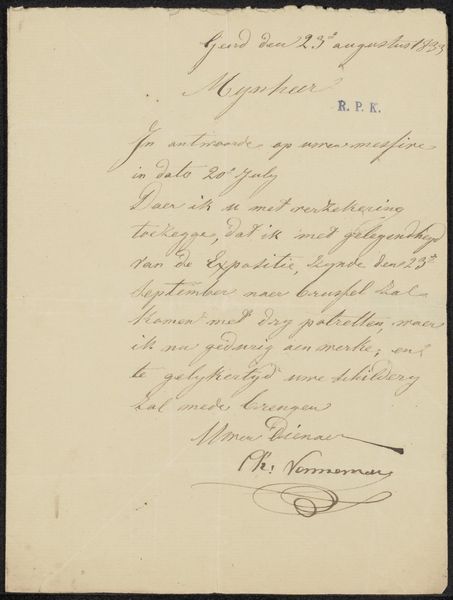 Gend den 23ᵉ augustus 1833
Mynheer
R. P. K.
In antwoorde op uwen messive
in dato 20ᵉ July
Daer ik u met verzekering
toezegge, dat ik met gelegendheyd
van de Expositie, zynde den 23ᵉ
September naer Brussel zal
komen met dry potretten, waer
ik nu gedurig aen werke; en
te gelykertyd uwe schildery
zal mede brengen
Uwen Dienaer
Ch: Venneman